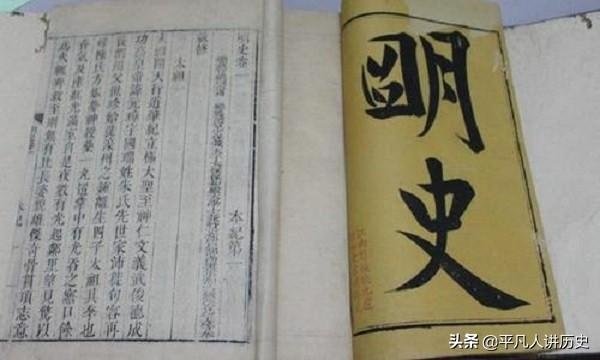 明史卷一
本紀第一
敕修
太祖一
太祖開天行道肇紀立極大聖至神仁文義武俊德成
功高皇帝諱元璋字國瑞姓朱氏先世家沛徙句容再
徙泗州父世珍始徙濠州之鍾離生四子太祖其季也
母陳氏方娠夢神授藥一丸置掌中有光吞之寤口餘
香氣及產紅光滿室自是夜數有光起鄰里望見驚以
為火輒奔救至則無有比長姿貌雄傑奇骨貫頂志意
明史
頭条 @平凡人讲历史